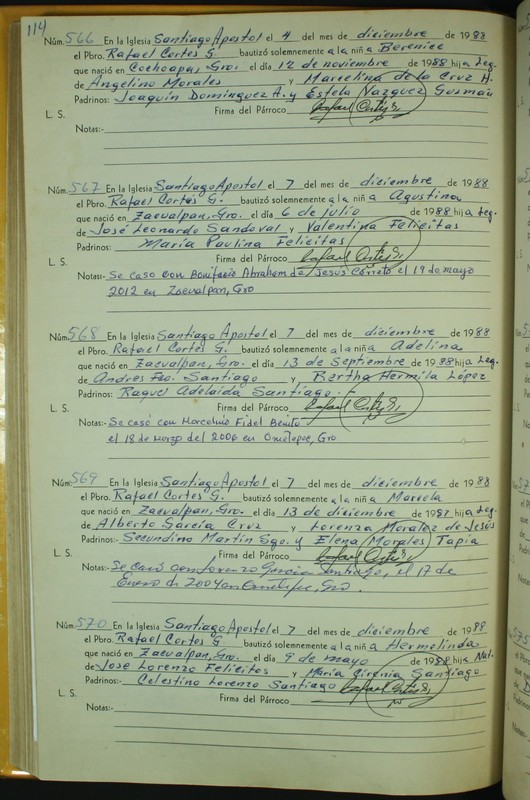 114
Núm. 566 En la Iglesia Santiago Apostol el 4 del mes de diciembre de 1988
el Pbro. Rafael Cortes G. bautizó solemnemente a la niña Berenice
que nació en Cochoapa, Gro. el día 12 de noviembre de 1988 hija Leg.
de Angelino Morales y Marcelina de la Cruz H.
Padrinos: Joaquín Domínguez A. y Estela Vazquez Guzmán
L. S. Firma del Párroco Rafael Cortés G.
Notas:-
Núm. 567 En la Iglesia Santiago Apostol el 7 del mes de diciembre de 1988
el Pbro. Rafael Cortés G. bautizó solemnemente a la niña Agustina
que nació en Zacualpan, Gro. el día 6 de julio de 1988 hija Leg.
de José Leonardo Sandoval y Valentina Felicitas
Padrinos: María Paulina Felicitas
L. S. Firma del Párroco Rafael Cortés G.
Notas:- Se caso con Bonifacio Abraham de Jesús el 19 de mayo
2012 en Zacualpan, Gro
Núm. 568 En la Iglesia Santiago Apostol el 7 del mes de diciembre de 1988
el Pbro. Rafael Cortes G. bautizó solemnemente a la niña Adelina
que nació en Zacualpan, Gro. el día 13 de Septiembre de 1988 hija Leg.
de Andres Fco. Santiago y Bertha Hermila López
Padrinos: Raquel Adelaida Santiago.
L. S. Firma del Párroco Rafael Cortés G.
Notas:- Se casó con Marcelino Fidel Benito
el 18 de marzo del 2006 en Ometepec, Gro
Núm. 569 En la Iglesia Santiago Apostol el 7 del mes de diciembre de 1988
el Pbro. Rafael Cortes G. bautizó solemnemente a la niña Marcela
que nació en Zacualpan, Gro. el día 13 de diciembre de 1987 hija Leg.
de Alberto García Cruz y Lorenza Morales de Jesús
Padrinos: Secundino Martin Sgo. y Elena Morales Tapia
L. S. Firma del Párroco Rafael Cortés G.
Notas:- Se casó con Lorenzo García Santiago, el 17 de
Enero de 2004 en Ometepec, Gro.
Núm. 570 En la Iglesia Santiago Apostol el 7 del mes de diciembre de 1988
el Pbro. Rafael Cortes G. bautizó solemnemente a la niña Hermelinda
que nació en Zacualpan, Gro. el día 9 de mayo de 1988 hija Nat.
de Jose Lorenzo Felicitos y María Santiago
Padrinos:- Celestino Lorenzo Santiago
L. S. Firma del Párroco Rafael Cortés G.
Notas:-